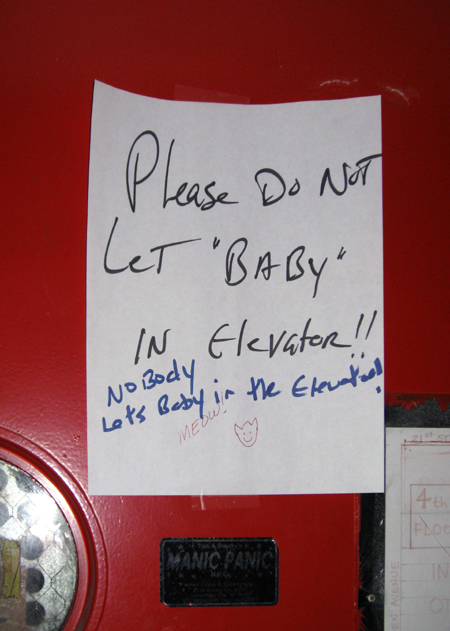 Please Do Not
Let "BABy"
IN Elevator!!
NoBody
Lets Baby in the Elevator!!
MEOW!
MANIC PANIC
21st S
4th
FLOO
IN
OT
AVENUE